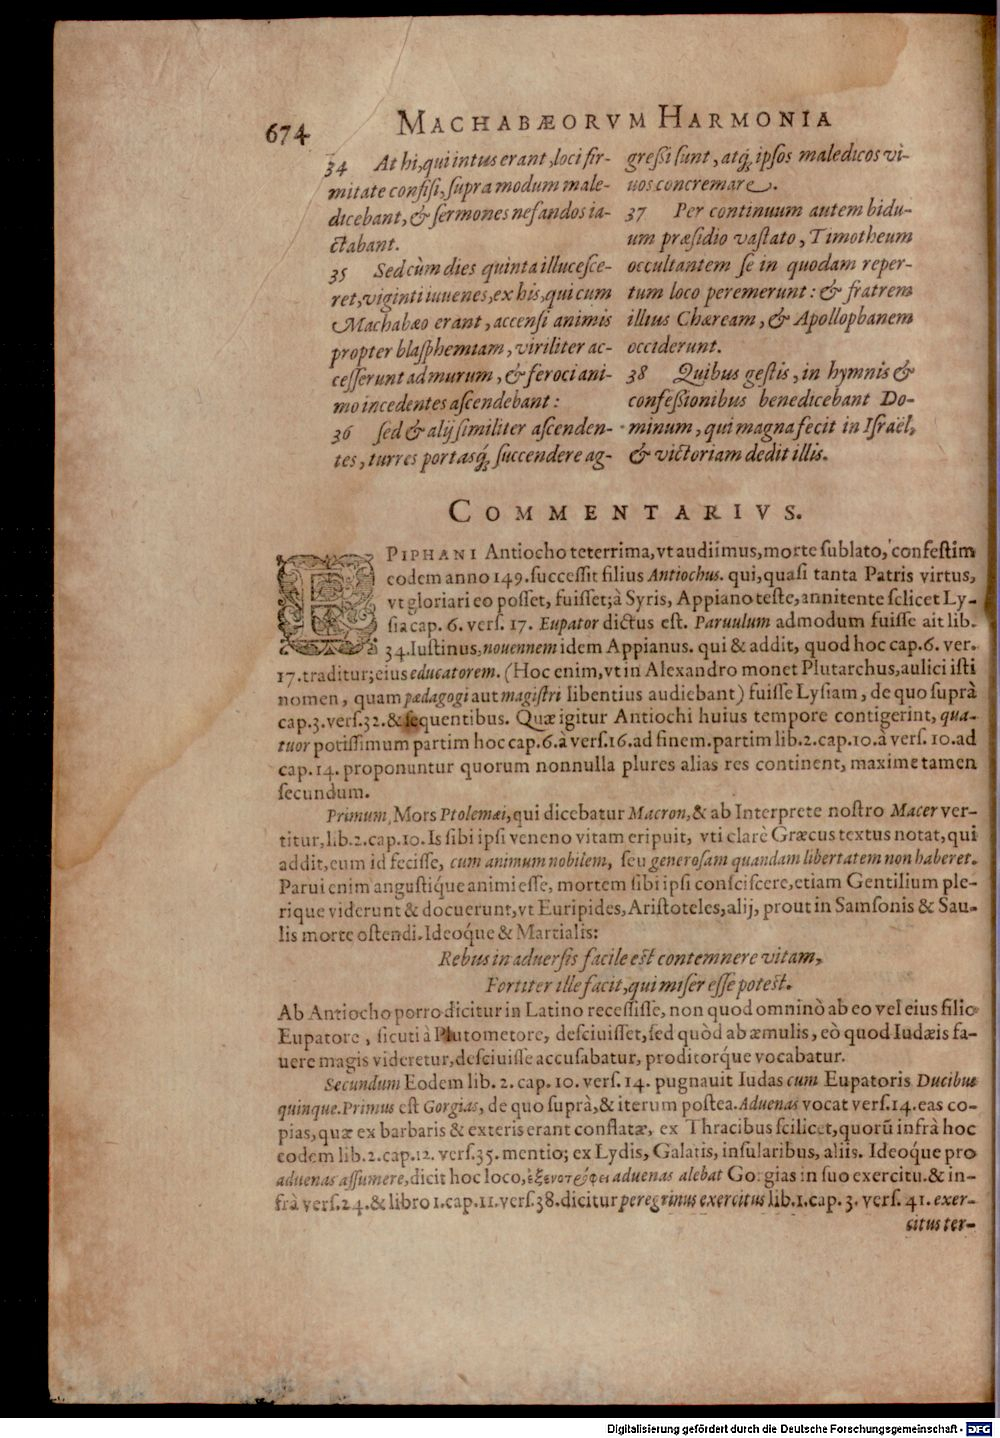 674
MACHABÆORVM HARMONIA
34 At hi, qui intus erant, loci fir-
mitate confisi, supra modum male-
dicebant, & sermones nefandos ia-
ctabant.
35 Sed cùm dies quinta illucesce-
ret, viginti iuuenes, ex his, qui cum
Machabæo erant, accensi animis
propter blasphemiam, viriliter ac-
cesserunt ad murum, & feroci ani-
mo incedentes ascendebant:
36 sed & alij similiter ascenden-
tes, turres portasq́; succendere ag-
gressi sunt, atq́; ipsos maledicos vi-
uos concremare.
37 Per continuum autem bidu-
um præsidio vastato, Timotheum
occultantem se in quodam reper-
tum loco peremerunt: & fratrem
illius Chæream, & Apollophanem
occiderunt.
38 Quibus gestis, in hymnis &
confessionibus benedicebant Do-
minum, qui magna fecit in Israël,
& victoriam dedit illis.
COMMENTARIVS.
EPIPHANI Antiocho teterrima, vt audiimus, morte sublato, confestim
eodem anno 149. successit filius Antiochus. qui, quasi tanta Patris virtus,
vt gloriari eo posset, fuisset; à Syris, Appiano teste, annitente scilicet Ly-
sia cap. 6. vers. 17. Eupator dictus est. Paruulum admodum fuisse ait lib.
34. Iustinus, nouennem idem Appianus. qui & addit, quod hoc cap. 6. ver.
17. traditur; eius educatorem. (Hoc enim, vt in Alexandro monet Plutarchus, aulici isti
nomen, quam pædagogi aut magistri libentius audiebant) fuisse Lysiam, de quo suprà
cap. 3. vers. 32. & sequentibus. Quæ igitur Antiochi huius tempore contigerint, qua-
tuor potissimum partim hoc cap. 6. à vers. 16. ad finem. partim lib. 2. cap. 10. à vers. 10. ad
cap. 14. proponuntur quorum nonnulla plures alias res continent, maxime tamen
secundum.
Primum, Mors Ptolemæi, qui dicebatur Macron, & ab Interprete nostro Macer ver-
titur, lib. 2. cap. 10. Is sibi ipsi veneno vitam eripuit, vti clarè Græcus textus notat, qui
addit, eum id fecisse, cum animum nobilem, seu generosam quandam libertatem non haberet.
Parui enim angustiq́ue animi esse, mortem sibi ipsi consciscere, etiam Gentilium ple-
rique viderunt & docuerunt, vt Euripides, Aristoteles, alij, prout in Samsonis & Sau-
lis morte ostendi. Ideoq́ue & Martialis:
Rebus in aduersis facile est contemnere vitam,
Fortiter ille facit, qui miser esse potest.
Ab Antiocho porro dicitur in Latino recessisse, non quod omninò ab eo vel eius filio
Eupatore, sicuti à Plutometore, desciuisset, sed quòd ab æmulis, eò quod Iudæis fa-
uere magis videretur, desciuisse accusabatur, proditorq́ue vocabatur.
Secundum Eodem lib. 2. cap. 10. vers. 14. pugnauit Iudas cum Eupatoris Ducibus
quinque. Primus est Gorgias, de quo suprà, & iterum postea. Aduenas vocat vers. 14. eas co-
pias, quæ ex barbaris & exteris erant conflatæ, ex Thracibus scilicet, quorũ infrà hoc
eodem lib. 2. cap. 12. vers. 35. mentio; ex Lydis, Galatis, insularibus, aliis. Ideoque pro
aduenas assumere, dicit hoc loco, ἐξενοτρόφει aduenas alebat Gorgias in suo exercitu. & in-
frà vers. 24. & libro 1. cap. 11. vers. 38. dicitur peregrinus exercitus lib. 1. cap. 3. vers. 41. exer-
citus ter-
Digitalisierung gefördert durch die Deutsche Forschungsgemeinschaft - DFG